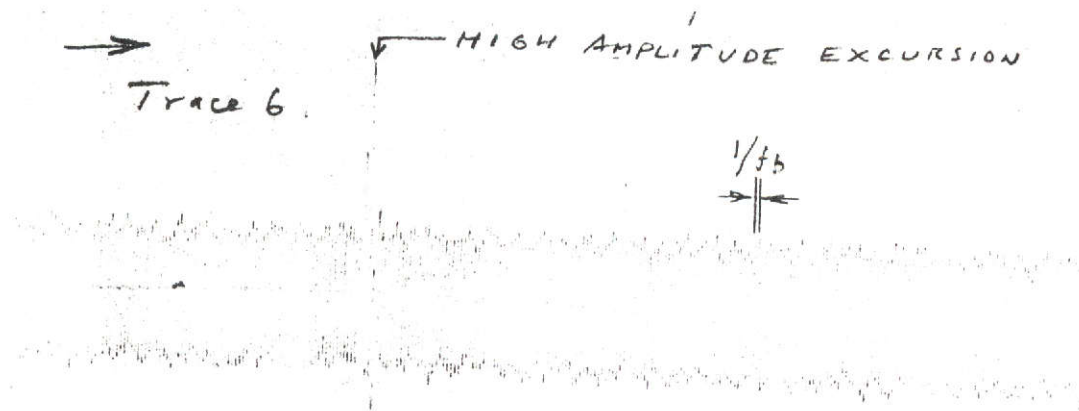 HIGH AMPLITUDE EXCURSION
Trace 6.
1/fb